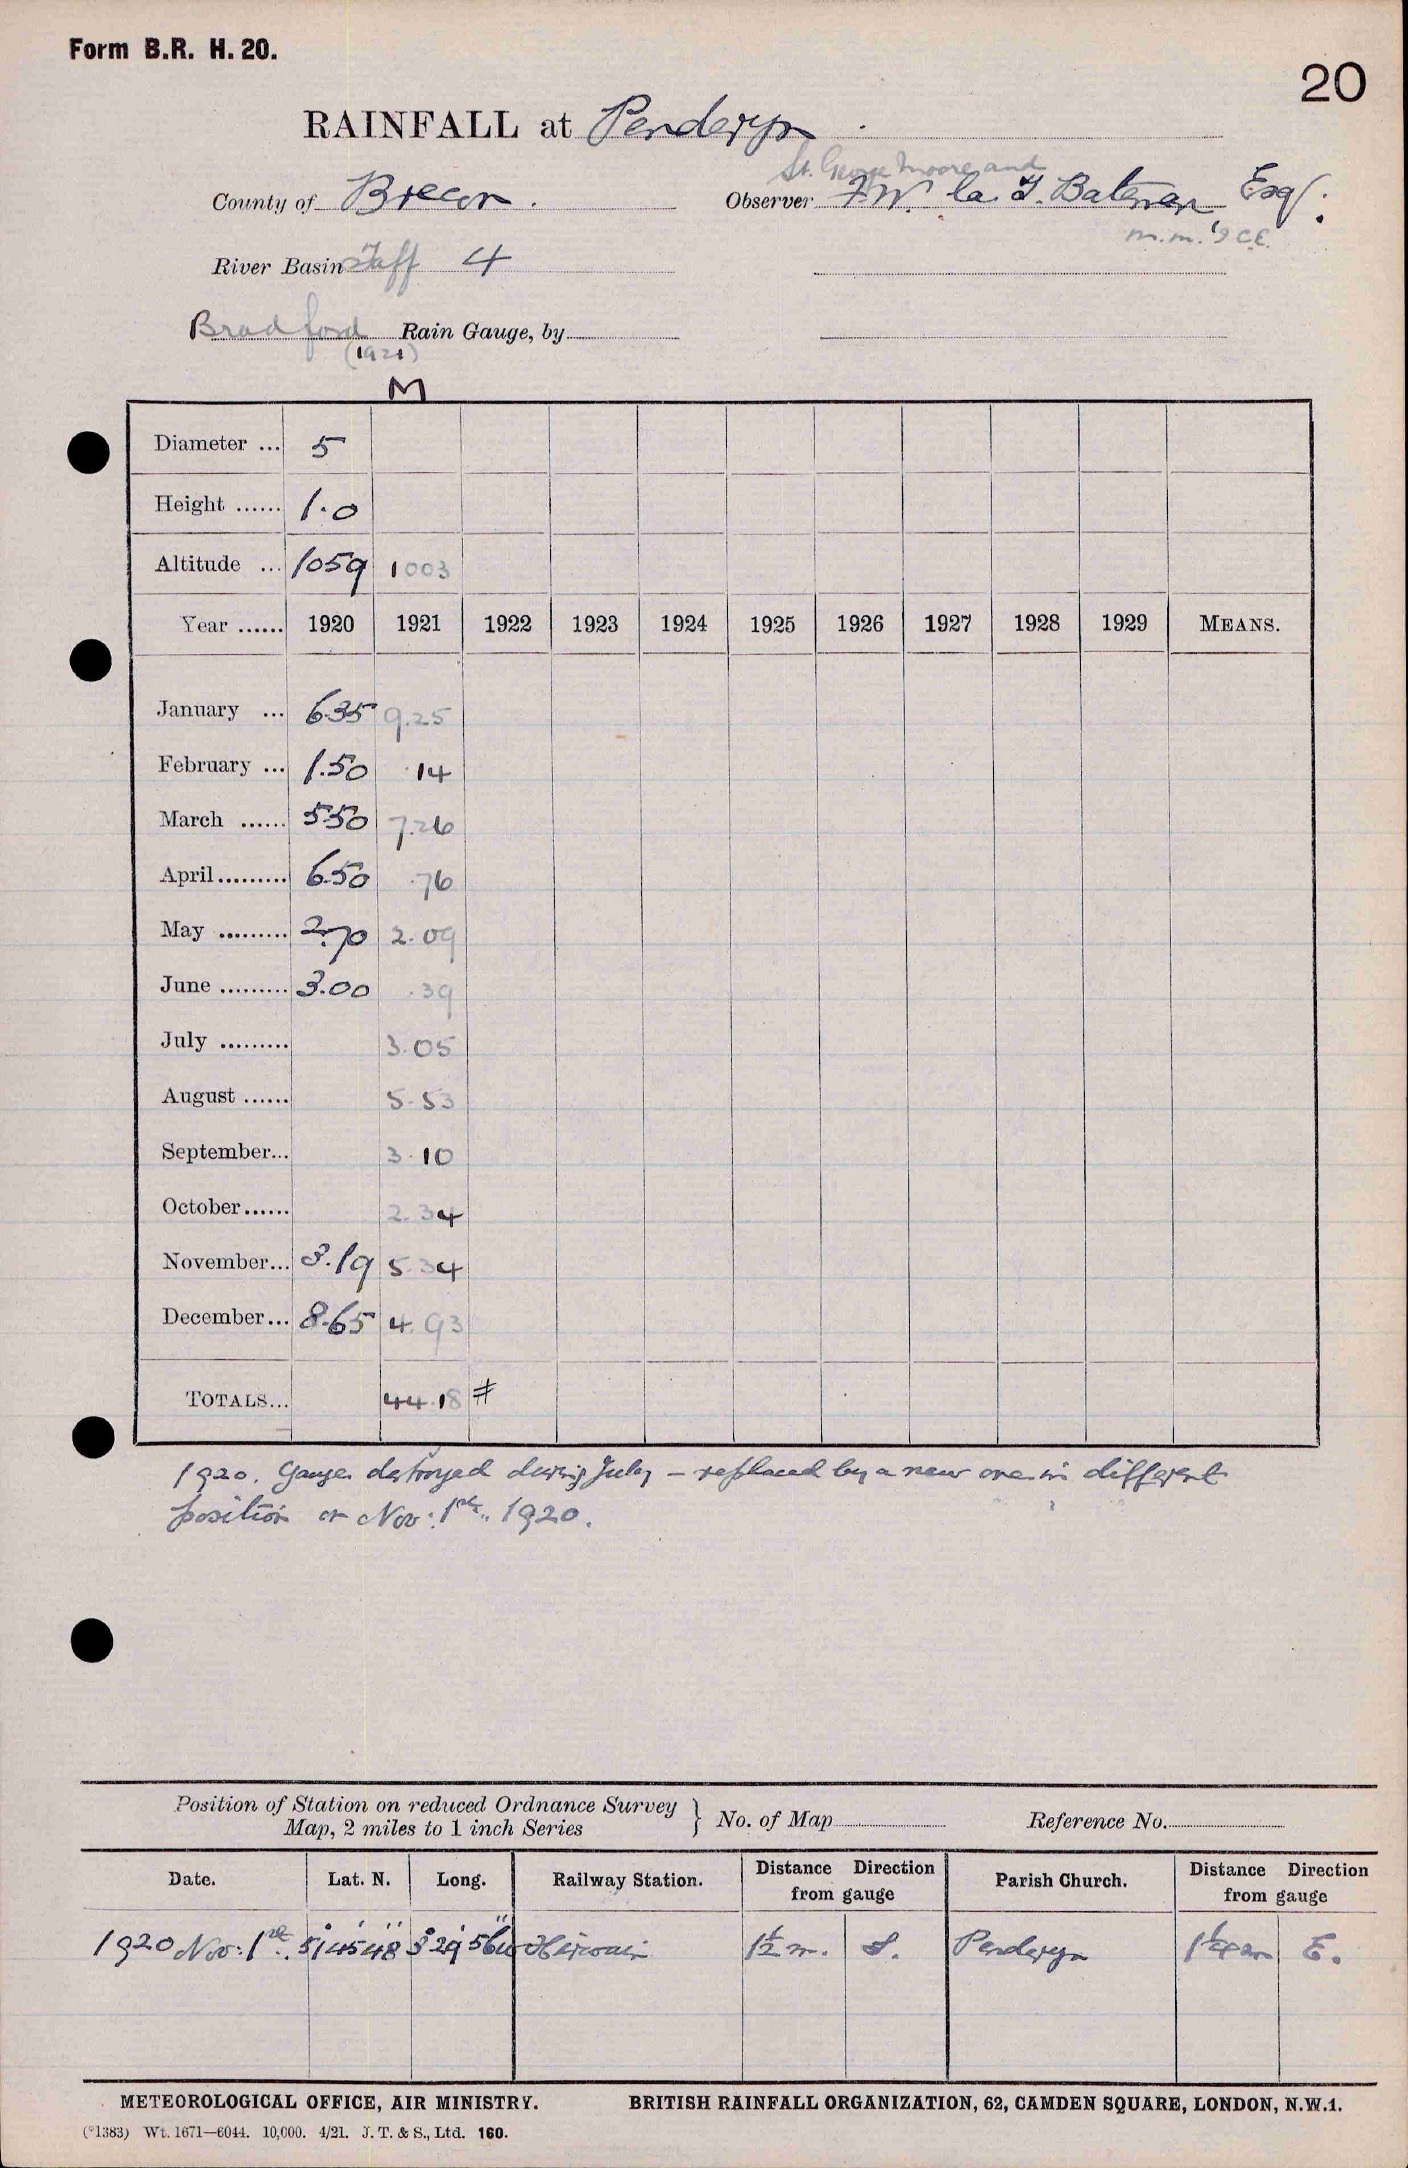 Form B.R. H. 20.
20
RAINFALL at Penderyn
St. George Moore and
County of Brecon. Observer F.W. la T. Bateman Esq:
M.M. I C.E.
River Basin Taff 4
Bradford Rain Gauge, by
(1921)
M
Diameter ... 5
Height ...... 1.0
Altitude ... 1059 1003
Year ...... 1920 1921 1922 1923 1924 1925 1926 1927 1928 1929 MEANS.
January ... 6.35 9.25
February ... 1.50 .14
March ...... 5.50 7.26
April ......... 6.50 .76
May ......... 2.70 2.09
June ......... 3.00 .39
July ......... 3.05
August ...... 5.53
September... 3.10
October...... 2.34
November... 3.19 5.34
December... 8.65 4.93
TOTALS... 44.18 #
1920. Gauge destroyed during July – replaced by a new one in different
position on Nov: 1st. 1920.
Position of Station on reduced Ordnance Survey
Map, 2 miles to 1 inch Series } No. of Map Reference No.
Date. Lat. N. Long. Railway Station. Distance Direction from gauge Parish Church. Distance Direction from gauge
1920 Nov: 1st. 51° 45' 48" 3° 29' 56" W Hirwain 1½ m. S. Penderyn 1¼ m E.
METEOROLOGICAL OFFICE, AIR MINISTRY. BRITISH RAINFALL ORGANIZATION, 62, CAMDEN SQUARE, LONDON, N.W.1.
(*1383) Wt. 1671—6044. 10,000. 4/21. J. T. & S., Ltd. 160.